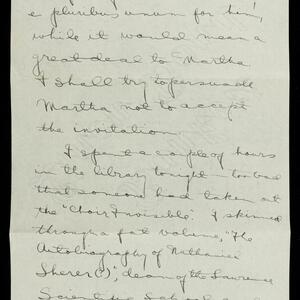 e pluribus unum for him,
while it would mean a
great deal to Martha
I shall try to persuade
Martha not to accept
the invitation.
I spent a couple of hours
in the library tonight — too bad
that someone had taken out
the "Choir Invisible." I skimmed
through a fat volume, "The
Autobiography of Nathaniel
Sherer(?)", dean of the Lawrence
Scientific School